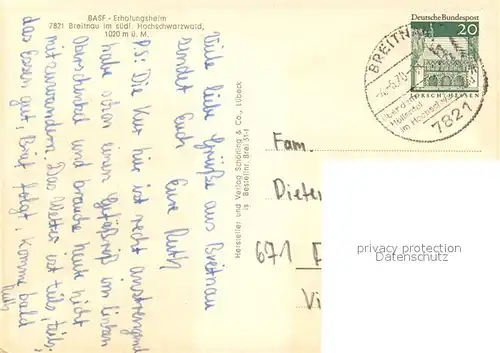 BASF - Erholungsheim
7821 Breitnau im südl. Hochschwarzwald,
1020 m ü. M.
Viele liebe Grüße aus Breitnau
sendet Euch Eure Ruth
PS: Die Kur hier ist recht anstrengend
habe schon einen im linken
Oberschenkel und brauche heute nicht
mitzuwandern. Das Wetter ist teils, teils,
das Essen gut, Brief folgt, komme bald
Ruth
Hersteller und Verlag Schöning & Co., Lübeck
Bestellnr. Brei 31-f
Deutsche Bundespost
20
LORSCH/HESSEN
BREITNAU
-6.70
im Hochsch
7821
Fam.
Dieter
671
Vi
privacy protection
Datenschutz